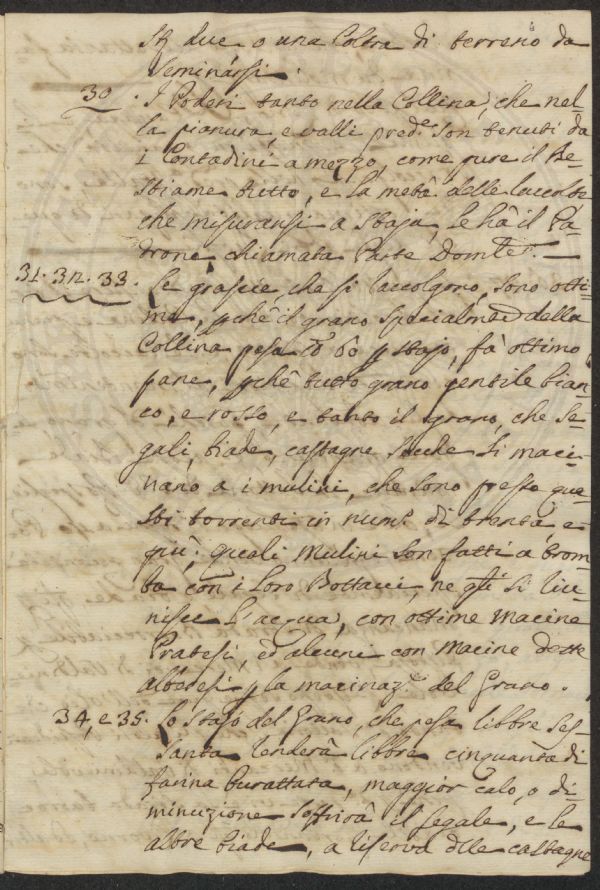 due o una Coltra di terreno da
seminarsi.
30. I Poderi tanto nella Collina, che nel-
la pianura, e valli pred.e son tenuti da
i Contadini a mezzo, come pure il Be-
stiame tutto, e la metà delle raccolte
che misuransi a staja, le hà il Pa-
drone, chiamata Parte
31. 32. 33. Le grascie, che si raccolgono, sono otti-
me, pchè il grano specialm.e della
Collina pesa 60 p stajo, fà ottimo
pane, pchè tutto grano gentile bian-
co, e rosso, e tanto il grano, che se-
gali, biade, castagne secche si maci-
nano a i mulini, che sono presso que-
sti torrenti in num.o di trenta, e
più; quali Mulini son fatti a trom-
ba con i loro Bottacci, ne q.li si riu-
nisce l'acqua, con ottime macine
Pratesi, ed alcuni con macine dette
albaresi p la macinaz.e del Grano.
34, e 35. Lo stajo del Grano, che pesa libbre ses-
santa renderà libbre cinquanta di
farina burattata, maggior calo, o di-
minuzione soffrirà il segale, e le
altre biade, a riserva dlle castagne